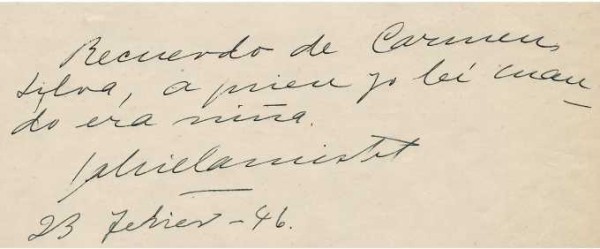 Recuerdo de Carmen
Silva, a quien yo leí cuan-
do era niña.
Gabriela Mistral
23 febrer - 46.